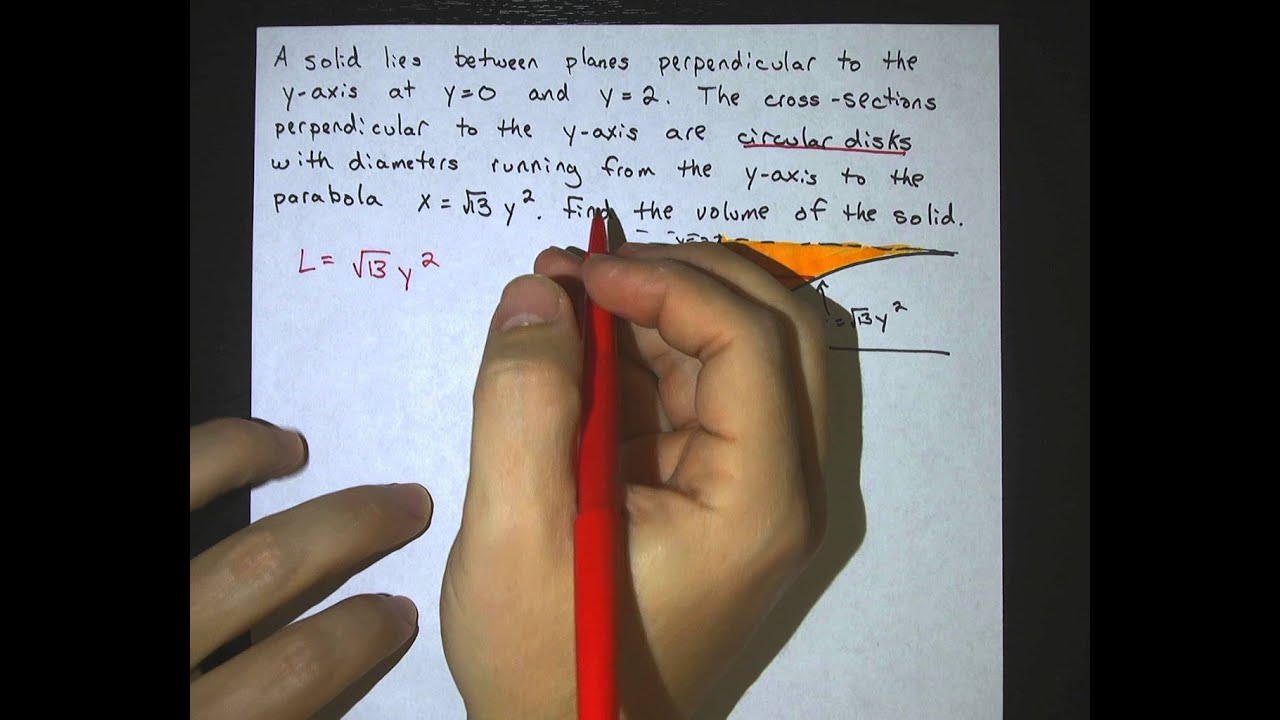 A solid lies between planes perpendicular to the
y-axis at y=0 and y=2. The cross-sections
perpendicular to the y-axis are circular disks
with diameters running from the y-axis to the
parabola x = √13 y². Find the volume of the solid.
L = √13 y²
= √13 y²